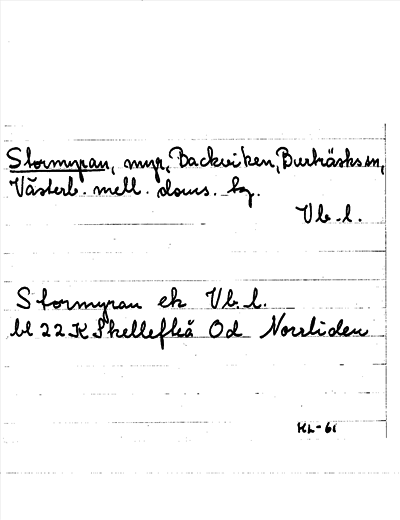 Stormyran, myr, Backviken, Burträsks sn,
Västerb. mell. doms. hg.
Vb. l.
Stormyran ek Vb. l.
bl 22 K Skellefteå Od Norrliden
KL-61